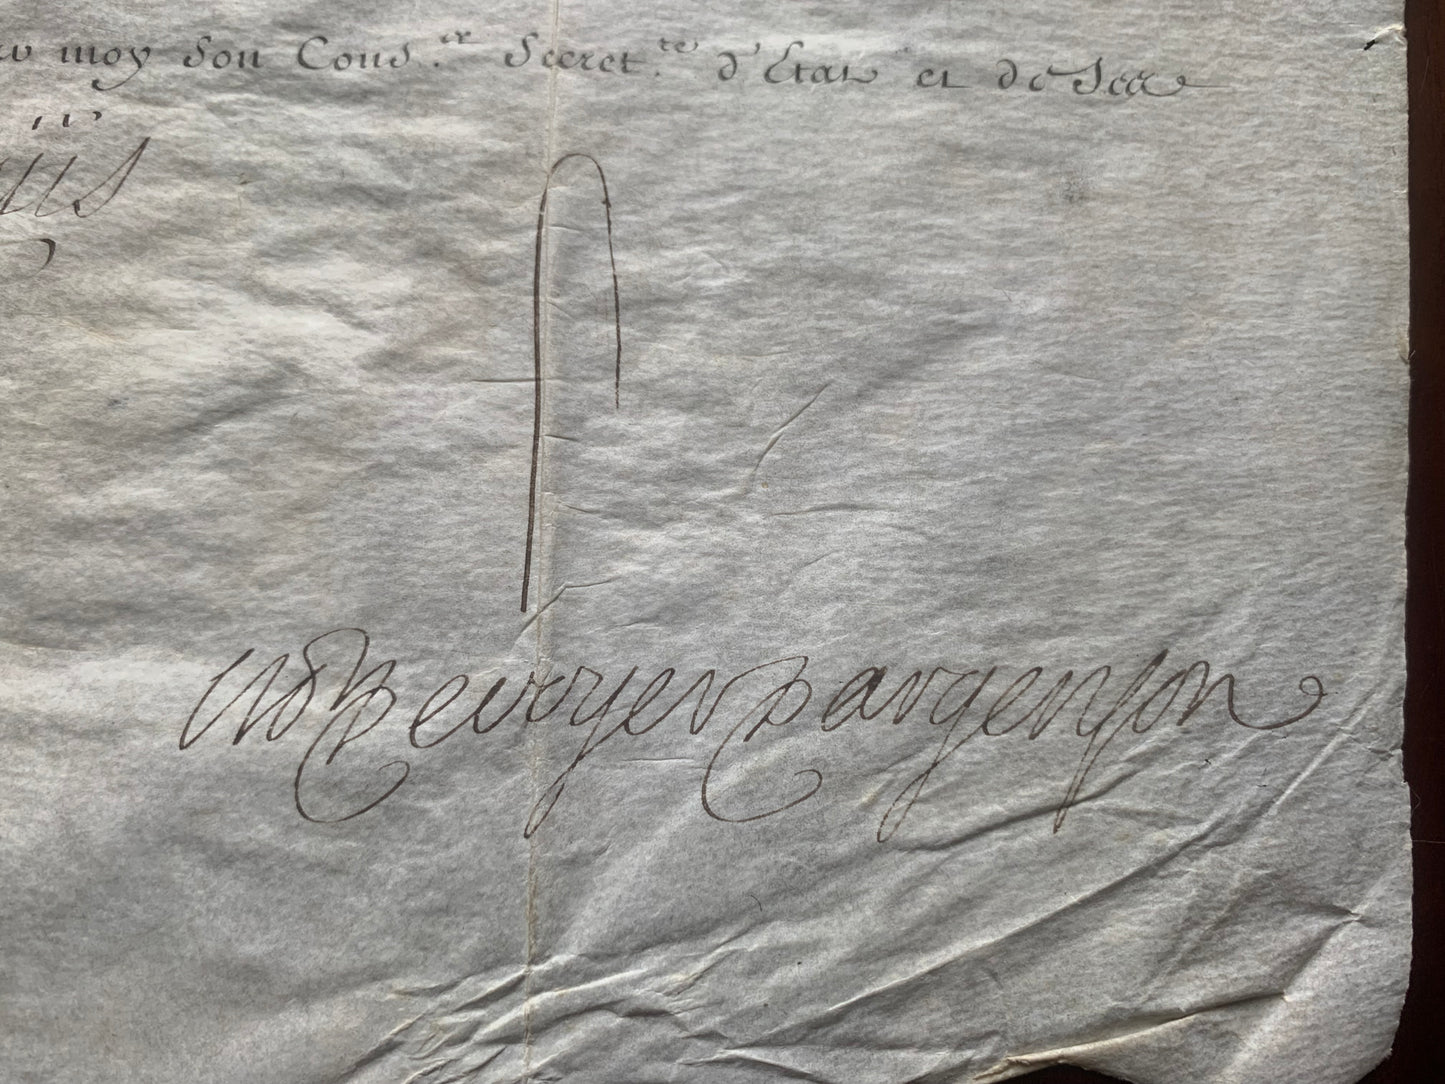 moy Son Cons.er Secret.re d'Etat et de Ses
uis
De voyer Dargenson